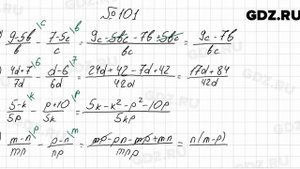 GDZ.RU
№101
(9-5b)/b \c - (7-5c)/c \b = (9c-5bc-7b+5bc)/bc = (9c-7b)/bc
(4d+7)/7d \6 - (d-6)/6d \7 = (24d+42-7d+42)/42d = (17d+84)/42d
(5-k)/5p \k - (p+10)/5k \p = (5k-k²-p²-10p)/5kp
(m-n)/mn \p - (p-n)/np \m = (mp-pn-mp+mn)/mnp = n(m-p)
GDZ.RU